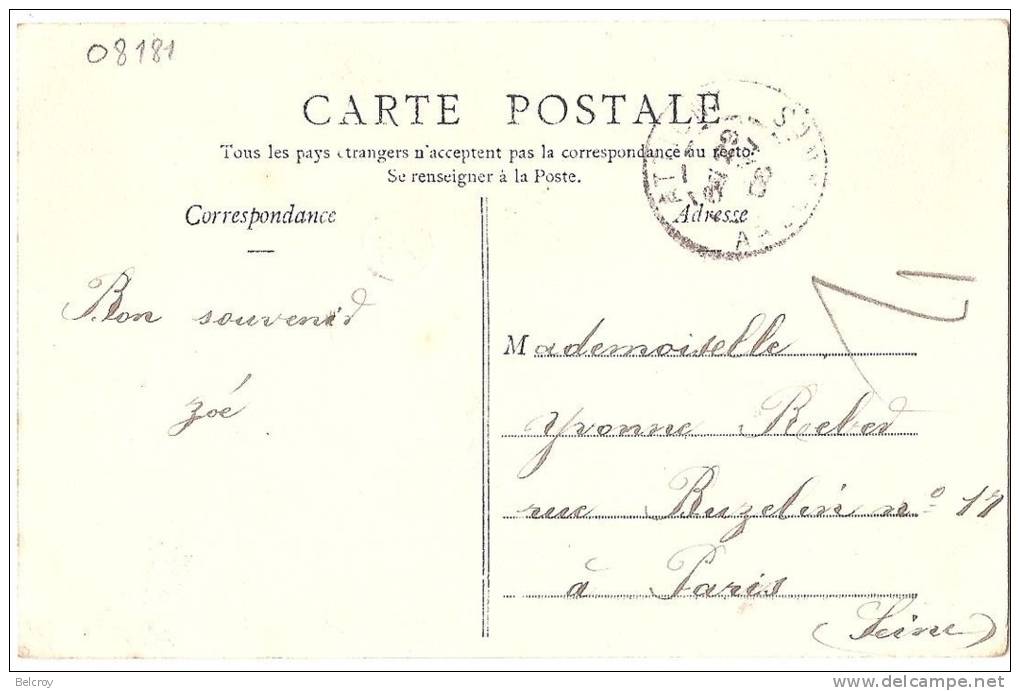 08181
CARTE POSTALE
Tous les pays étrangers n'acceptent pas la correspondance au recto.
Se renseigner à la Poste.
Correspondance
Adresse
Bon souvenir
Zoé
Mademoiselle
Yvonne
rue Buzelin nº 17
à Paris
(Seine)
Belcroy
www.delcampe.net